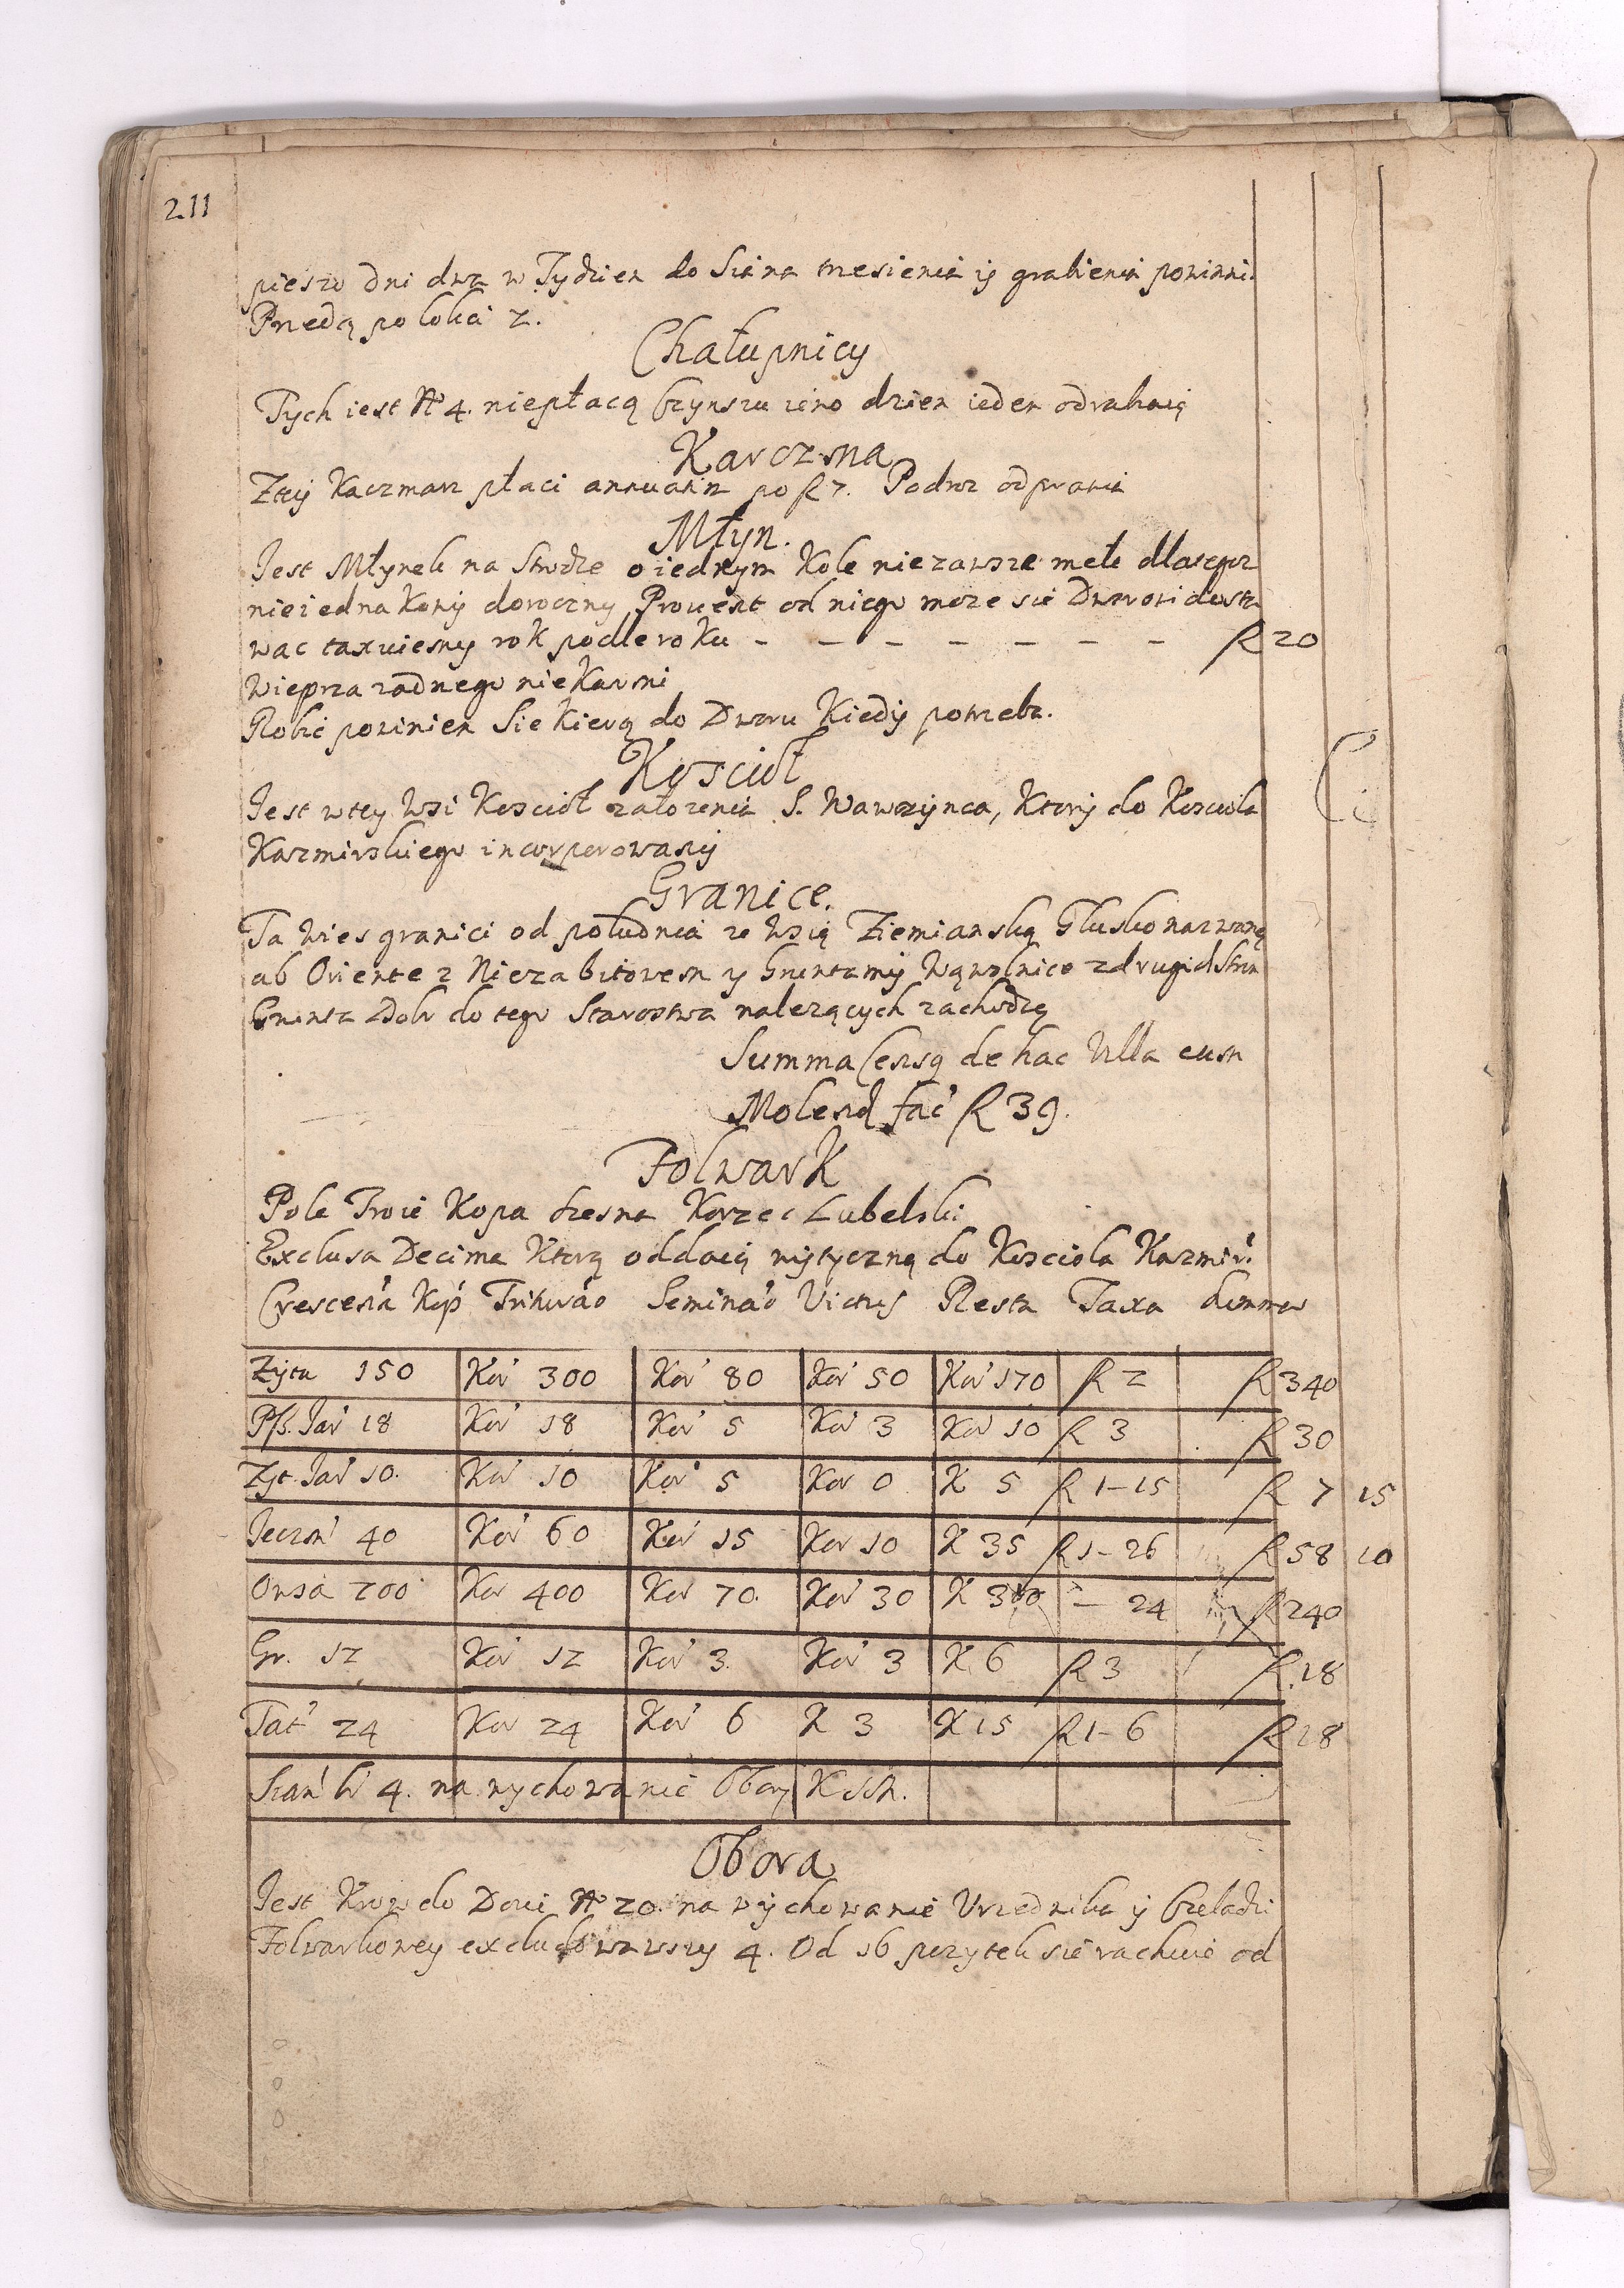 211
pieszo dni dwa w Tydzien do Siana trzesienia y grabienia powinni.
Przedą po łokci 2.
Chałupnicy
Tych iest No 4. niepłacą Czynszu ieno dzien ieden odrabiaią
Karczma
Ztey Kaczmarz płaci annuatim po fl 7. Podwr odprawia
Młyn.
Jest Młynek na Strudze o iednym Kole niezawsze mele dlaczego
nieiednakowy doroczny Prouent od niego moze sie Dworowi dosta
wac taxuiemy rok podle roku - - - - - - - fl 20
Wieprza zadnego nie Karmi
Robic powinien Siekierą do Dworu Kiedy potrzeba.
Kosciół
Jest wtey Wsi Kosciół załozenia S. Wawrzynca, Ktory do Kosciola
Kazmirskiego incorporowany
Granice.
Ta Wies granici od południa ze Wsią Ziemianską Głusko nazwaną
ab Oriente z Niezabitowem y Gruntamy Wąwolnice zdrugich stron
Grunta Dobr do tego Starostwa nalezących zachodzą
Summa Censq de hac Villa cum
Molend fac' fl 39.
Folwark
Pole Troie Kopa czesna Korzec Lubelski
Exclusa Decima Ktorą oddaią wytyczną do Kosciola Kazmir:
Crescen'a Kop' Tritura'o Semina'o Victus Resta Taxa Summa
Zyta 150 Kor' 300 Kor' 80 Kor' 50 Kor' 170 fl 2 fl 340
Psz. Jar' 18 Kor' 18 Kor' 5 Kor' 3 Kor 10 fl 3 fl 30
Zyt. Jar' 10. Kor' 10 Kor' 5 Kor 0 K 5 fl 1-15 fl 7 15
Jeczm' 40 Kor' 60 Kor' 15 Kor 10 K 35 fl 1-26 fl 58 10
Owsa 200 Kor 400 Kor 70. Kor' 30 K 300 - 24 fl 240
Gr. 12 Kor' 12 Kor' 3. Kor' 3 K 6 fl 3 fl 18
Tat' 24 Kor 24 Kor' 6 K 3 K 15 fl 1-6 fl 18
Sian' 4. na wychowanie Obory
Obora
Jest Krow do Doui No 20. na wychowanie Vrzednika y Czeladzi
Folwarkowey excludowawszy 4. Od 16 pozytek sie rachuie od